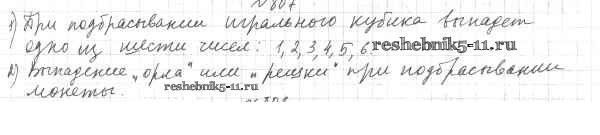 1) При подбрасывании игрального кубика выпадет
одно из шести чисел: 1, 2, 3, 4, 5, 6
reshebnik5-11.ru
2) Выпадение „орла" или „решки" при подбрасывании
монеты.
reshebnik5-11.ru